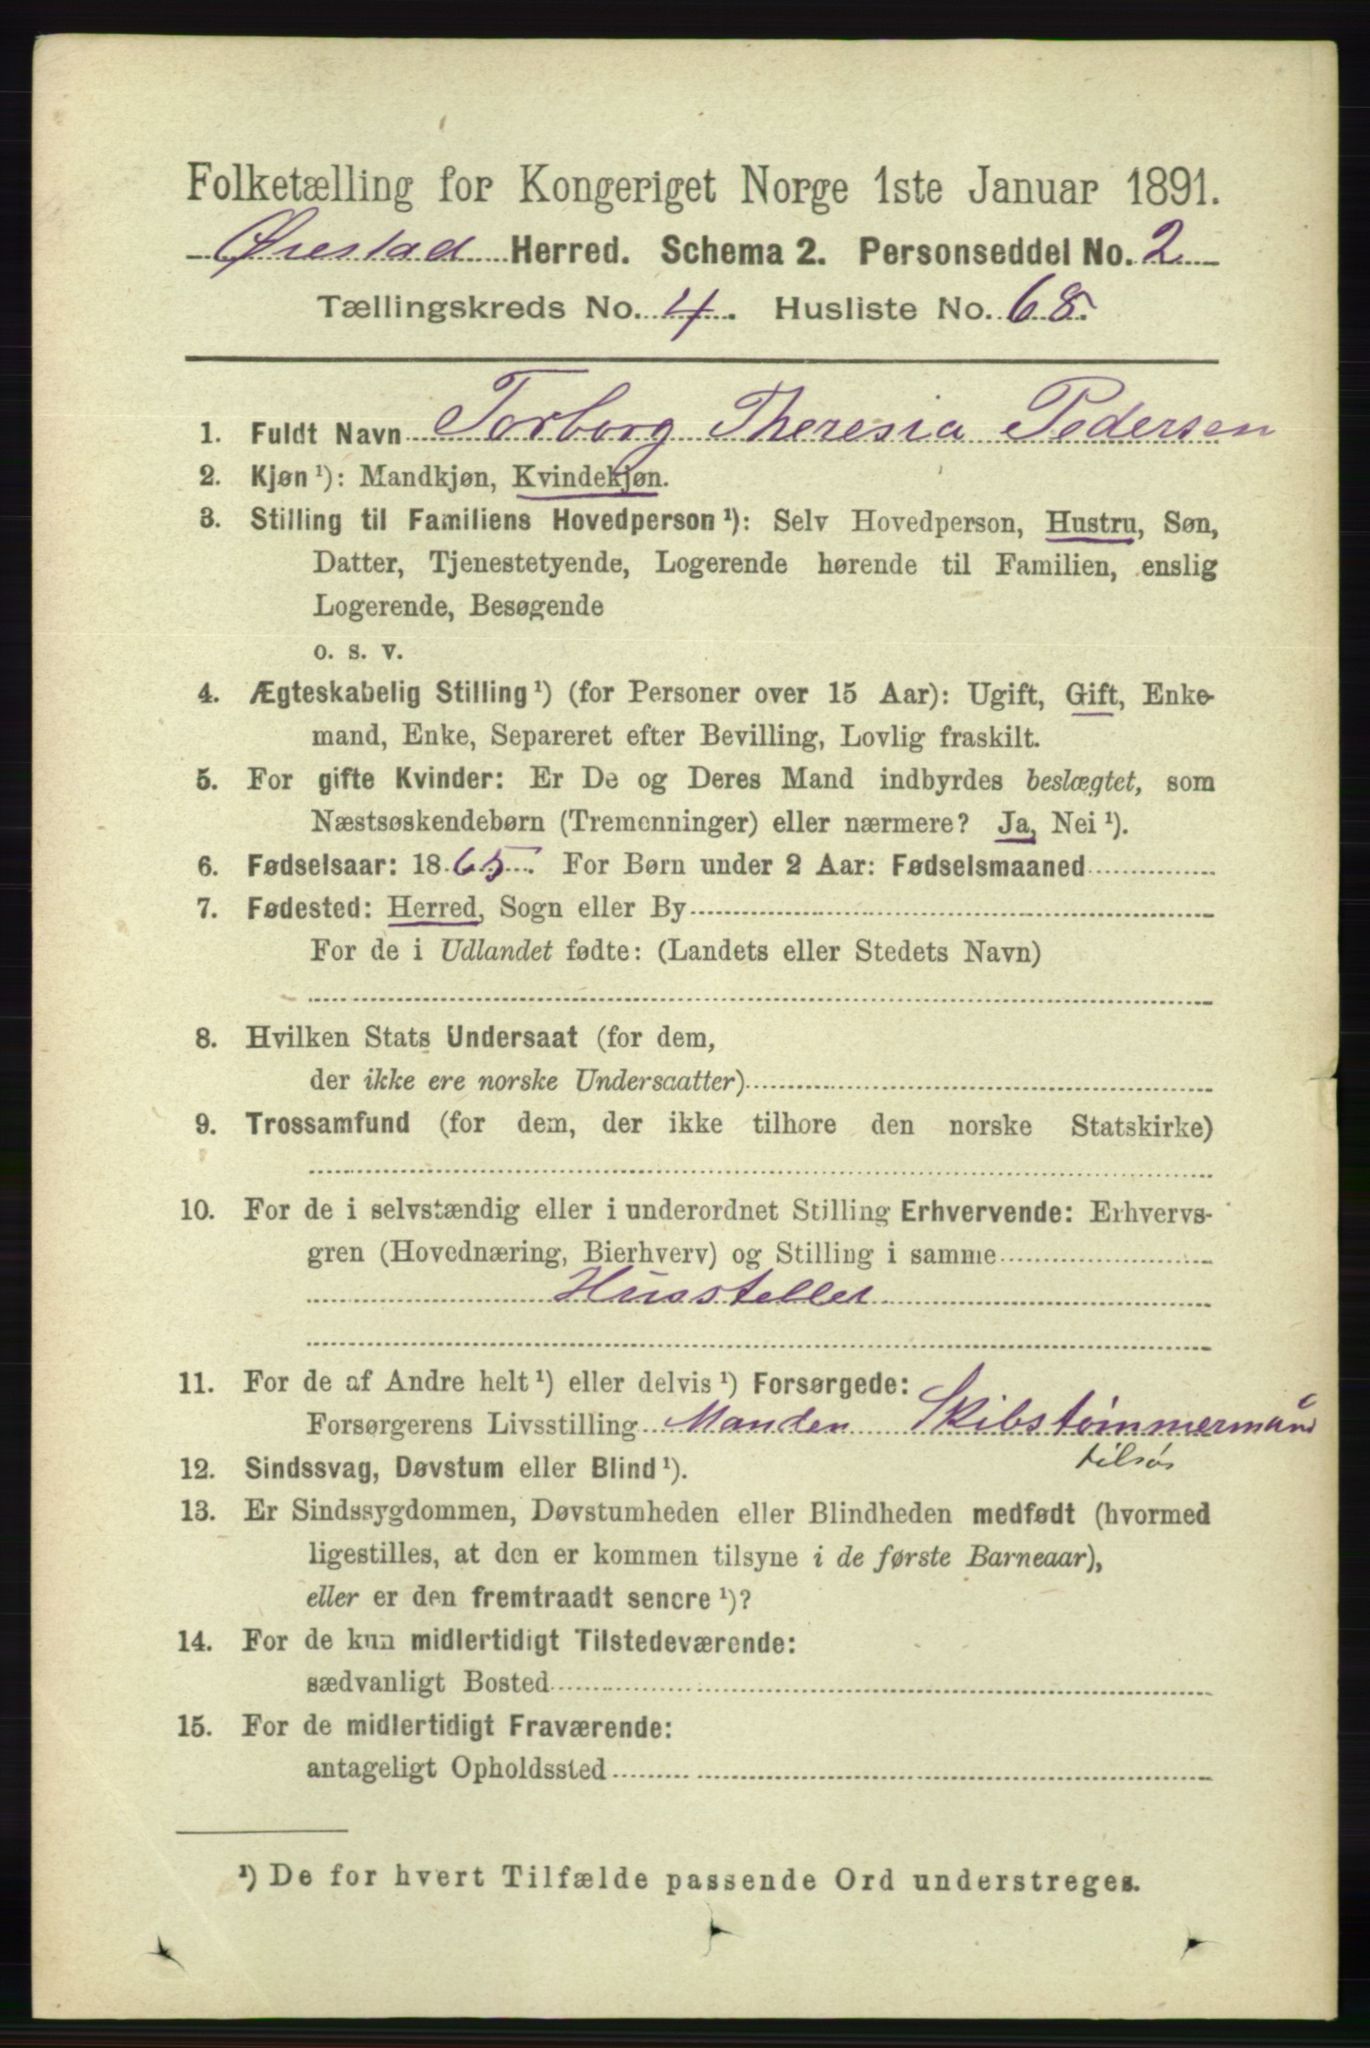 Folketælling for Kongeriget Norge 1ste Januar 1891.
Øiestad Herred. Schema 2. Personseddel No. 2
Tællingskreds No. 4. Husliste No. 68.
1. Fuldt Navn Torborg Theresia Pedersen
2. Kjøn ¹): Mandkjøn, Kvindekjøn.
3. Stilling til Familiens Hovedperson ¹): Selv Hovedperson, Hustru, Søn,
Datter, Tjenestetyende, Logerende hørende til Familien, enslig
Logerende, Besøgende
o. s. v.
4. Ægteskabelig Stilling ¹) (for Personer over 15 Aar): Ugift, Gift, Enke-
mand, Enke, Separeret efter Bevilling, Lovlig fraskilt.
5. For gifte Kvinder: Er De og Deres Mand indbyrdes beslægtet, som
Næstsøskendebørn (Tremenninger) eller nærmere? Ja, Nei ¹).
6. Fødselsaar: 1865. For Børn under 2 Aar: Fødselsmaaned
7. Fødested: Herred, Sogn eller By
For de i Udlandet fødte: (Landets eller Stedets Navn)
8. Hvilken Stats Undersaat (for dem,
der ikke ere norske Undersaatter)
9. Trossamfund (for dem, der ikke tilhøre den norske Statskirke)
10. For de i selvstændig eller i underordnet Stilling Erhvervende: Erhvervs-
gren (Hovednæring, Bierhverv) og Stilling i samme
Husstellet
11. For de af Andre helt ¹) eller delvis ¹) Forsørgede:
Forsørgerens Livsstilling Manden Skibstømmermand
tilsøs
12. Sindssvag, Døvstum eller Blind ¹).
13. Er Sindssygdommen, Døvstumheden eller Blindheden medfødt (hvormed
ligestilles, at den er kommen tilsyne i de første Barneaar),
eller er den fremtraadt senere ¹)?
14. For de kun midlertidigt Tilstedeværende:
sædvanligt Bosted
15. For de midlertidigt Fraværende:
antageligt Opholdssted
¹) De for hvert Tilfælde passende Ord understreges.